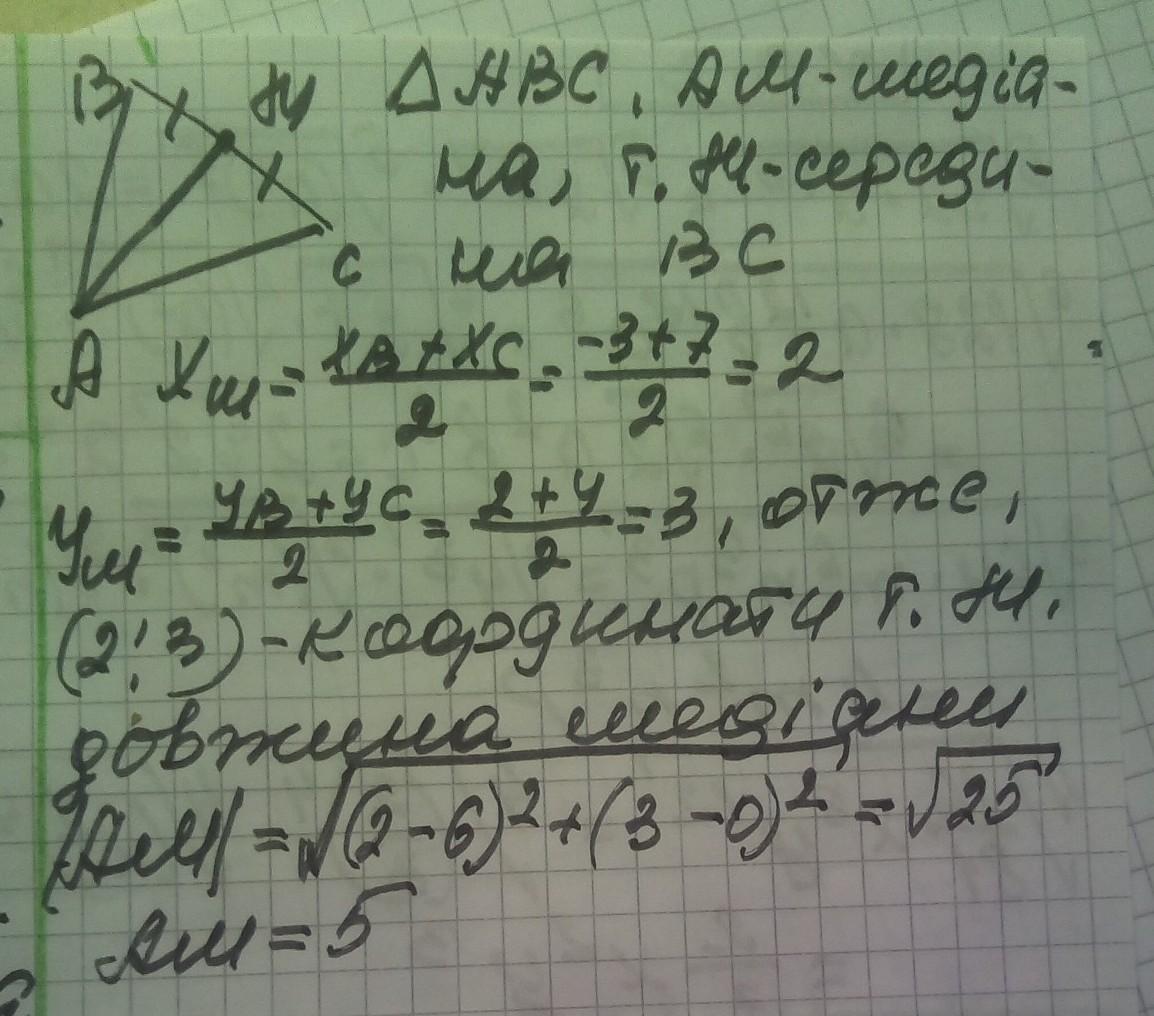 B M △ABC, AM-медіа-
на, т. M-середи-
C на BC
A Xм = (XB + XC)/2 = (-3+7)/2 = 2
Yм = (YB + YC)/2 = (2+4)/2 = 3, отже,
(2; 3) - координати т. M.
довжина медіани
|AM| = √((2-6)² + (3-0)²) = √25
AM = 5